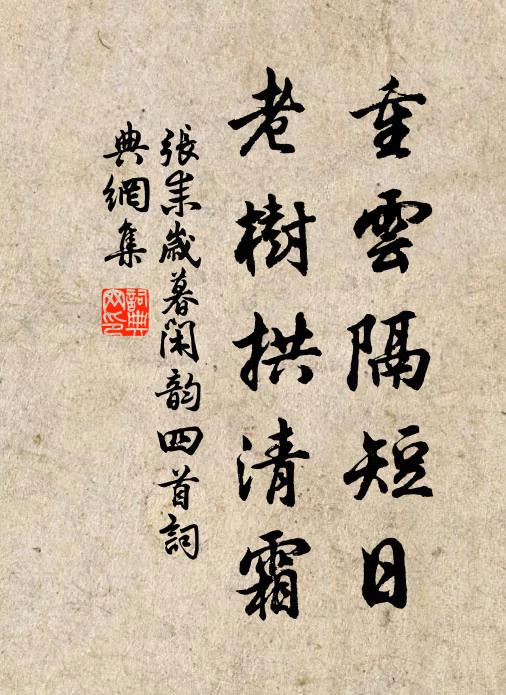 重雲隔短日
老樹拱清霜
張耒歲暮閑韵四首詞
典網集
詞典
网印